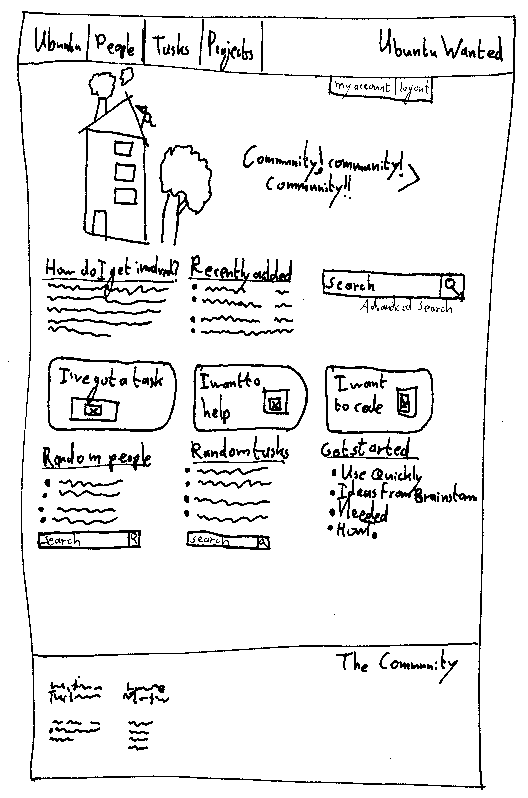 Ubuntu People Tasks Projects Ubuntu Wanted
my account logout
Community! community!
Community!!
How do I get involved?
Recently added
search
Advanced Search
I've got a task
I want to
help
I want
to code
Random people
Random tasks
Get started
• Use Quickly
• Ideas From Brainstorm
• Needed
search
search
The Community